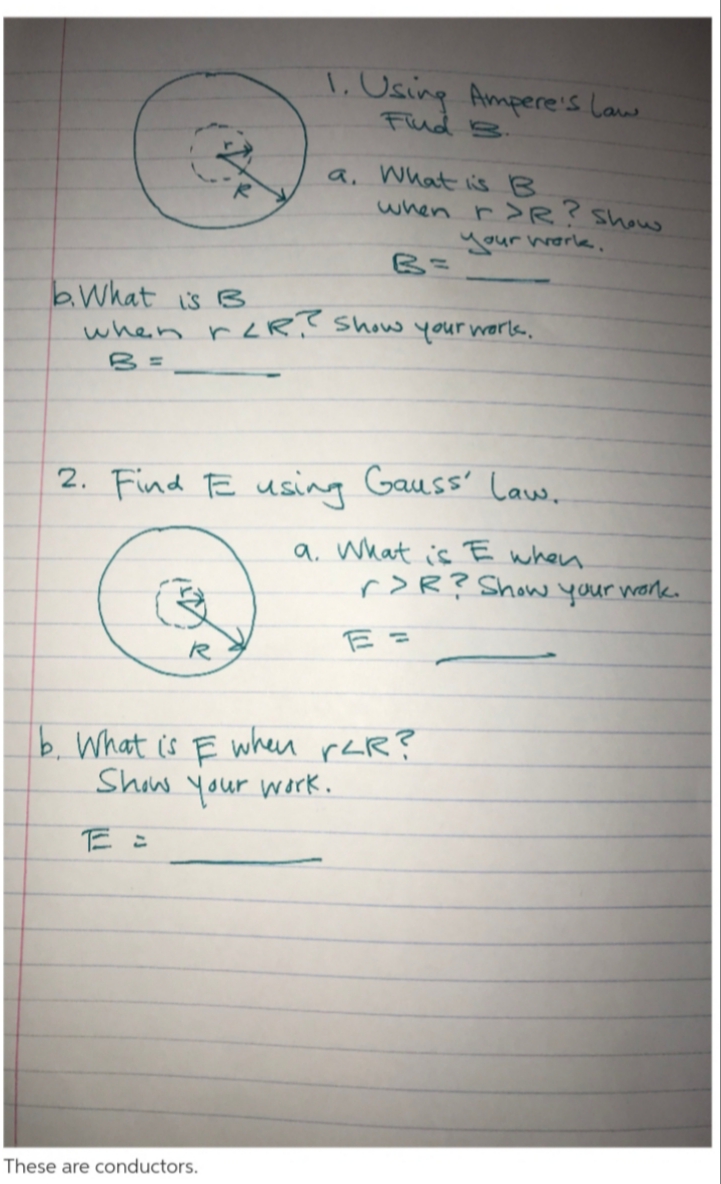 1. Using Ampere's Law
Find B.
a. What is B
when r > R? Show
your work.
B = ____
r
R
b. What is B
when r < R? Show your work.
B = ____
2. Find E using Gauss' Law.
a. What is E when
r > R? Show your work.
E = ____
r
R
b. What is E when r < R?
Show your work.
E = ____
These are conductors.